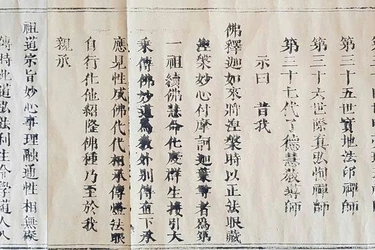 第三十四世禪師
第三十五世寶地法印禪師
第三十六世際真弘禪師
第三十七代了德慧導師
示曰 昔我
佛釋迦如來將湼槃時以正法眼藏
湼槃妙心付摩訶迦葉尊者為第
一祖緒佛慧命化度群生接引大
乘傳佛妙道為教外別傳直下承
應見性成佛代代相承傳燈法眼
自行化他紹隆佛種乃至於我
親承
祖道宗旨妙心事理融通性相無礙
傳持此道弘法利生道人